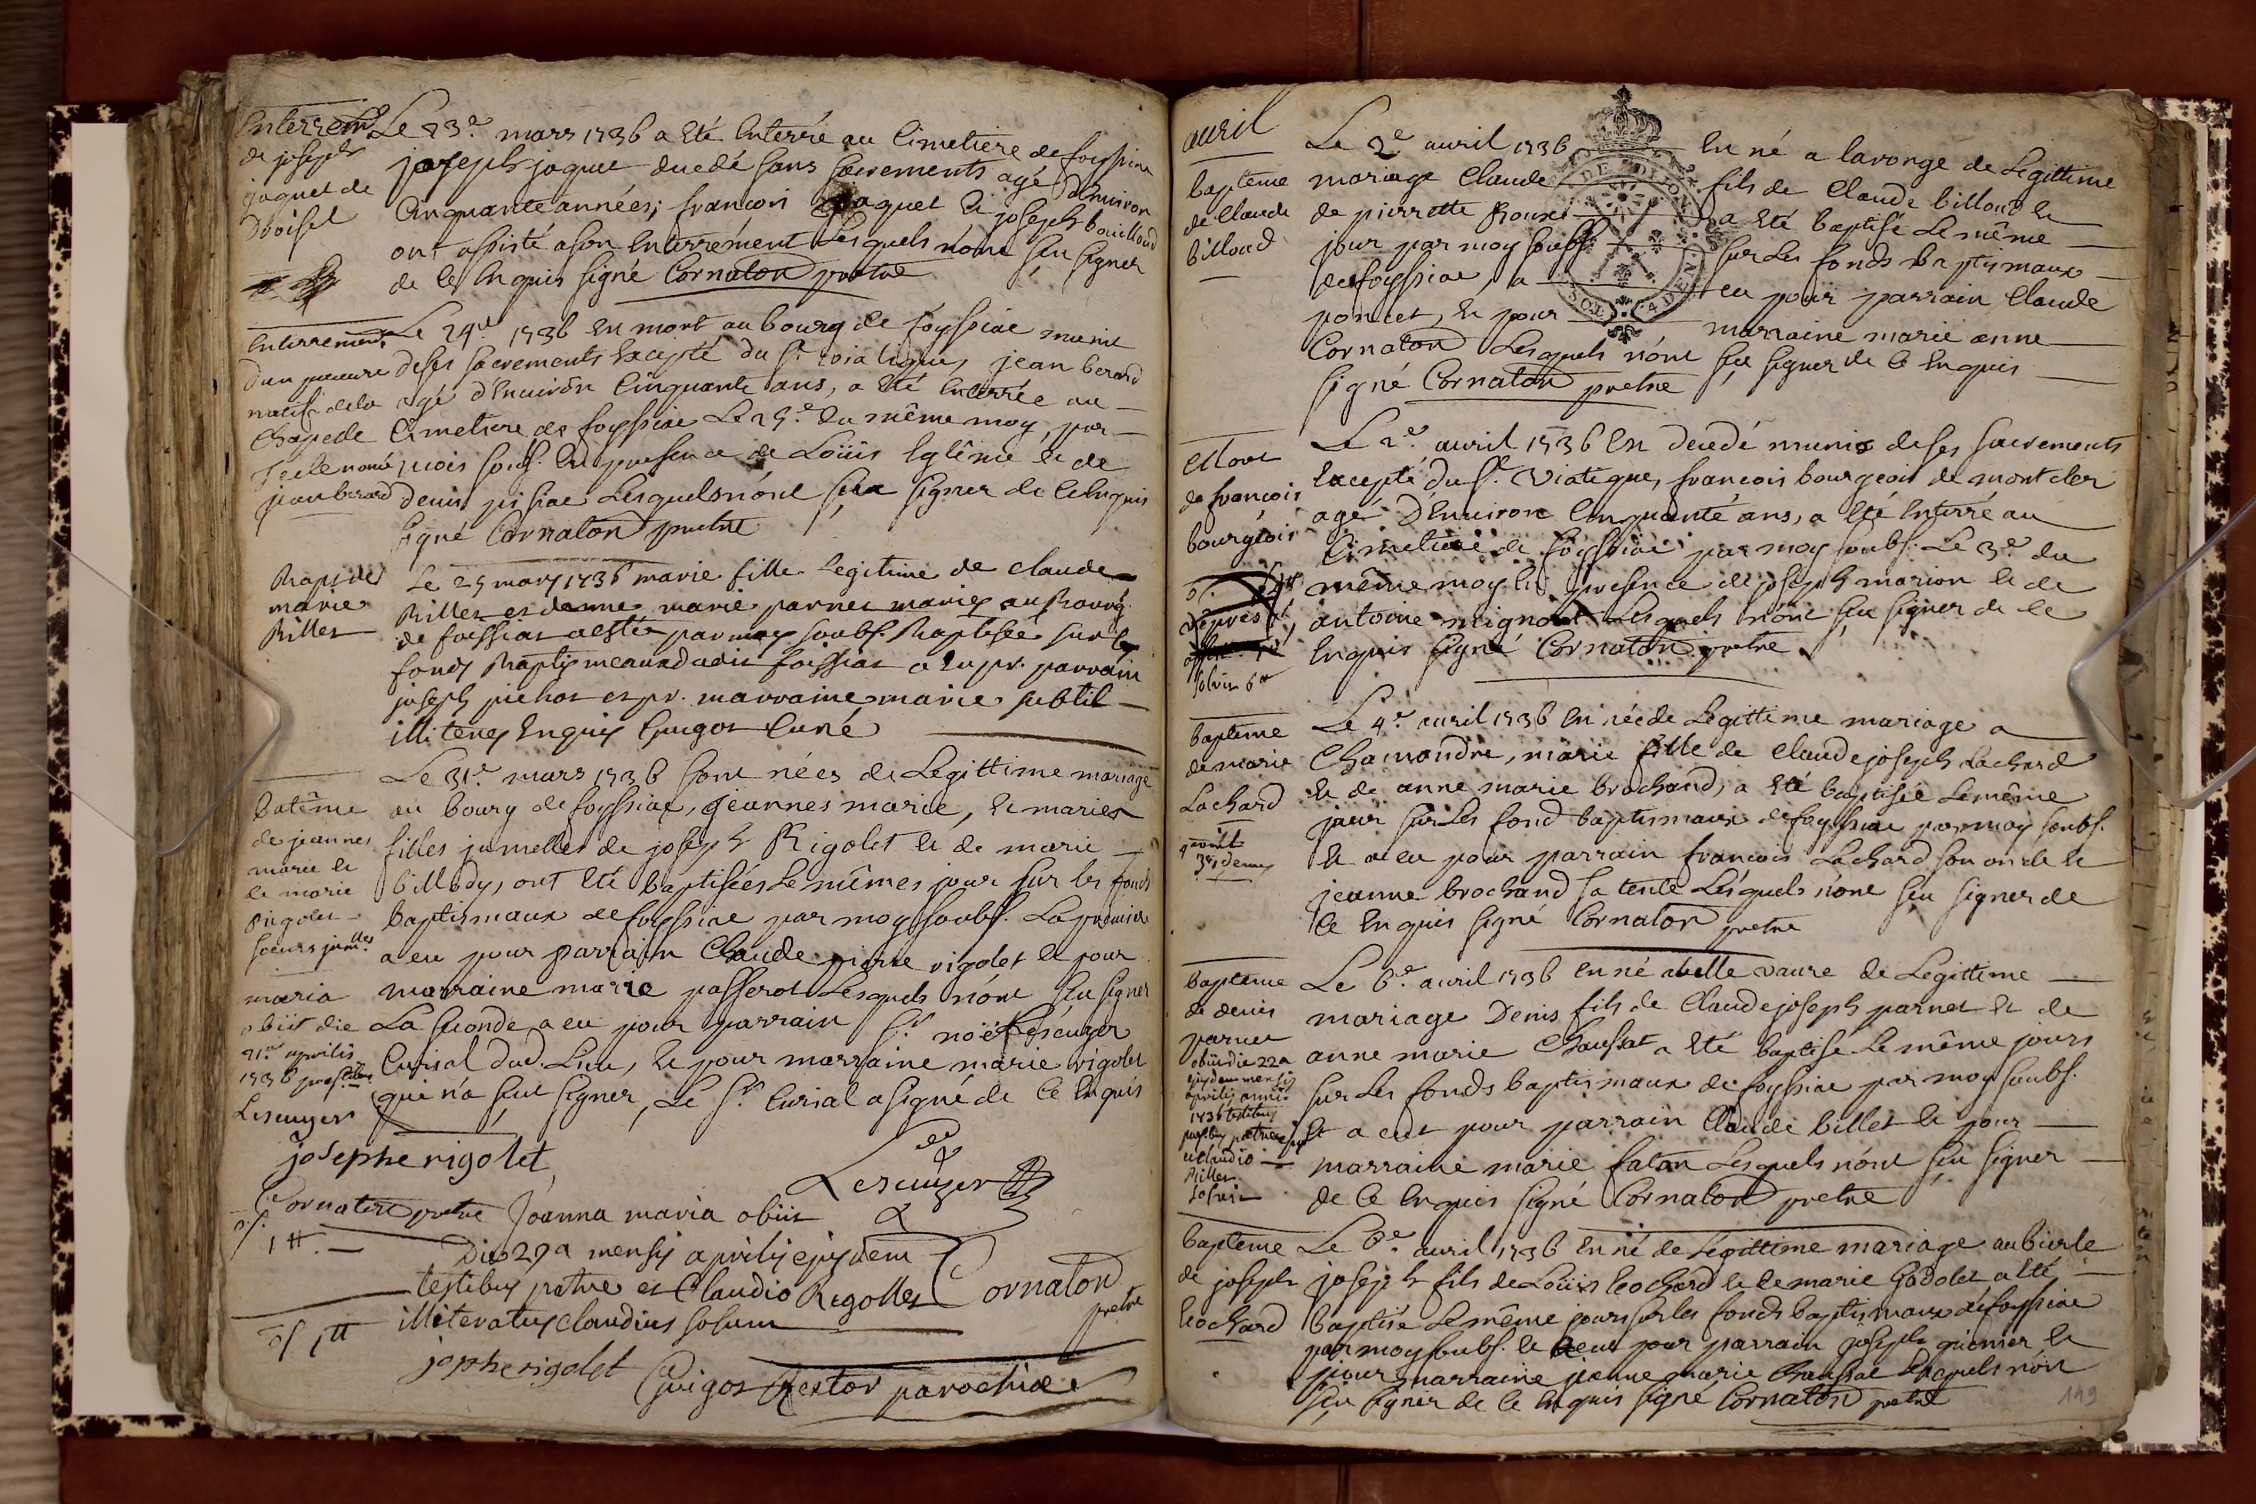 Enterremt
de joseph
jaquet de
Le 23e mars 1736 a été Enterré au Cimetiere de foyssia
joseph jaquet decedé sans sacrements agé d'Environ
Cinquante années, francois Jaquet et joseph bouilloud
ont assisté a son Enterrement Lesquels n'ont sçu signer
de ce Enquis signé Cornaton pretre
Enterrement
d'un pauvre
natif de la
Chapelle
Tecle nomé
jean berard
Le 24e 1736 Est mort au bourg de foyssiae munit
de ses sacrements Excepté du St. viatique, jean berard
agé d'Environ Cinquante ans, a été Enterrée au
Cimetiere de foyssiae Le 25e du même moy, par
mois soubs. En presence de Loüis Eglême et de
denis pissiae Lesquels n'ont sçu signer de ce Enquis
signé Cornaton pretre
Bapt de
marie
Billet
Le 25 mars 1736 marie fille legitime de claude
Billet et danne marie parnet maries au Bourg
de foissiat a esté par moy soubs. Baptisée sur les
fonds Baptismeaux dudit foissiat a eu pr. parrain
joseph pichot et pr. marraine marie subtil
illiteres Enquis Guigot Curé
batême
de jeannes
marie et
de marie
Rigolet
soeurs jumlles
Le 31e mars 1736 sont nées de Legittime mariage
au bourg de foyssiae, jeannes marie, et maries
filles jumelles de joseph Rigolet et de marie
billody, ont été baptisées Le mêmes jour sur les fonds
baptismaux de foyssiae par moy soubs. La premiere
a eu pour parrain Claude pierre rigolet et pour
marraine marie passerot Lesquels n'ont sçu signer
La seconde a eu pour parrain Sr. noël Lescuyer
Curial dud. Lieu, et pour marraine marie rigolet
qui n'a sçut signer, Le Sr. Curial a signé de ce Enquis
maria
obiit die
21a aprilis
1736 prestibus
Lescuyer
josephe rigolet
Lescuyer
Cornaton pretre
Joanna maria obiit
Die 29a mensis aprilis ejusdem
testibus patre et Claudio Rigollet
illiteratus claudius solum
Cornaton
pretre
josphe rigolet
Guigot Rector parochiae
avril
bapteme
de Claude
billoud
GEN. DE DIJON
Le 2e avril 1736 Est né a lavonge de Legittime
mariage Claude fils de Claude billoud et
de pierrette Roux a été baptisé Le même
jour par moy soubs. sur Les fonds baptismaux
de foyssiae, a eu pour parrain Claude
poncet, et pour marraine marie anne
Cornaton Lesquels n'ont sçu signer de ce Enquis
signé Cornaton pretre
Mort
de françois
bourgeois
solvit 6tt
Le 2e avril 1736 Est decedé munis de ses sacrements
Excepté du St. Viatique, francois bourgeois de montcler
agé d'Environ Cinquante ans, a été Enterré au
Cimetiere de foyssiae par moy soubs. Le 3e du
même moy En presence de joseph marion et de
antoine mignot Lesquels n'ont sçu signer de ce
Enquis signé Cornaton pretre
bapteme
de marie
Lachard
Le 4e avril 1736 Est née de Legittime mariage a
Chamandre, marie fille de Claude joseph Lachard
et de anne marie brochand, a été baptisée Le même
jour sur Les fond baptismaux de foyssiae par moy soubs.
Et a eu pour parrain francois Lachard son oncle et
jeanne brochand sa tente Lesquels n'ont sçu signer de
ce Enquis signé Cornaton pretre
bapteme
de denis
parnet
obiit die 22a
ejusdem mensis
aprilis anni
1736 testibus
patre
et Claudio
Billet
solvit
Le 6e avril 1736 Est né abelle vaure de Legittime
mariage Denis fils de Claude joseph parnet et de
anne marie Chaussat a été baptisé Le même jours
sur Les fonds baptismaux de foyssiae par moy soubs.
Et a eut pour parrain Claude billet et pour
marraine marie falan Lesquels n'ont sçu signer
de ce Enquis signé Cornaton pretre
bapteme
de joseph
brochard
Le 6e avril 1736 Est né de Legittime mariage au bierle
joseph fils de Loüis brochard et de marie Godolet a été
baptisé Le même jours sur les fonds baptismaux de foyssiae
par moy soubs. Et a eut pour parrain joseph guiener et
pour marraine jeanne marie Chaussat Lesquels n'ont
sçu signer de ce Enquis signé Cornaton pretre
149